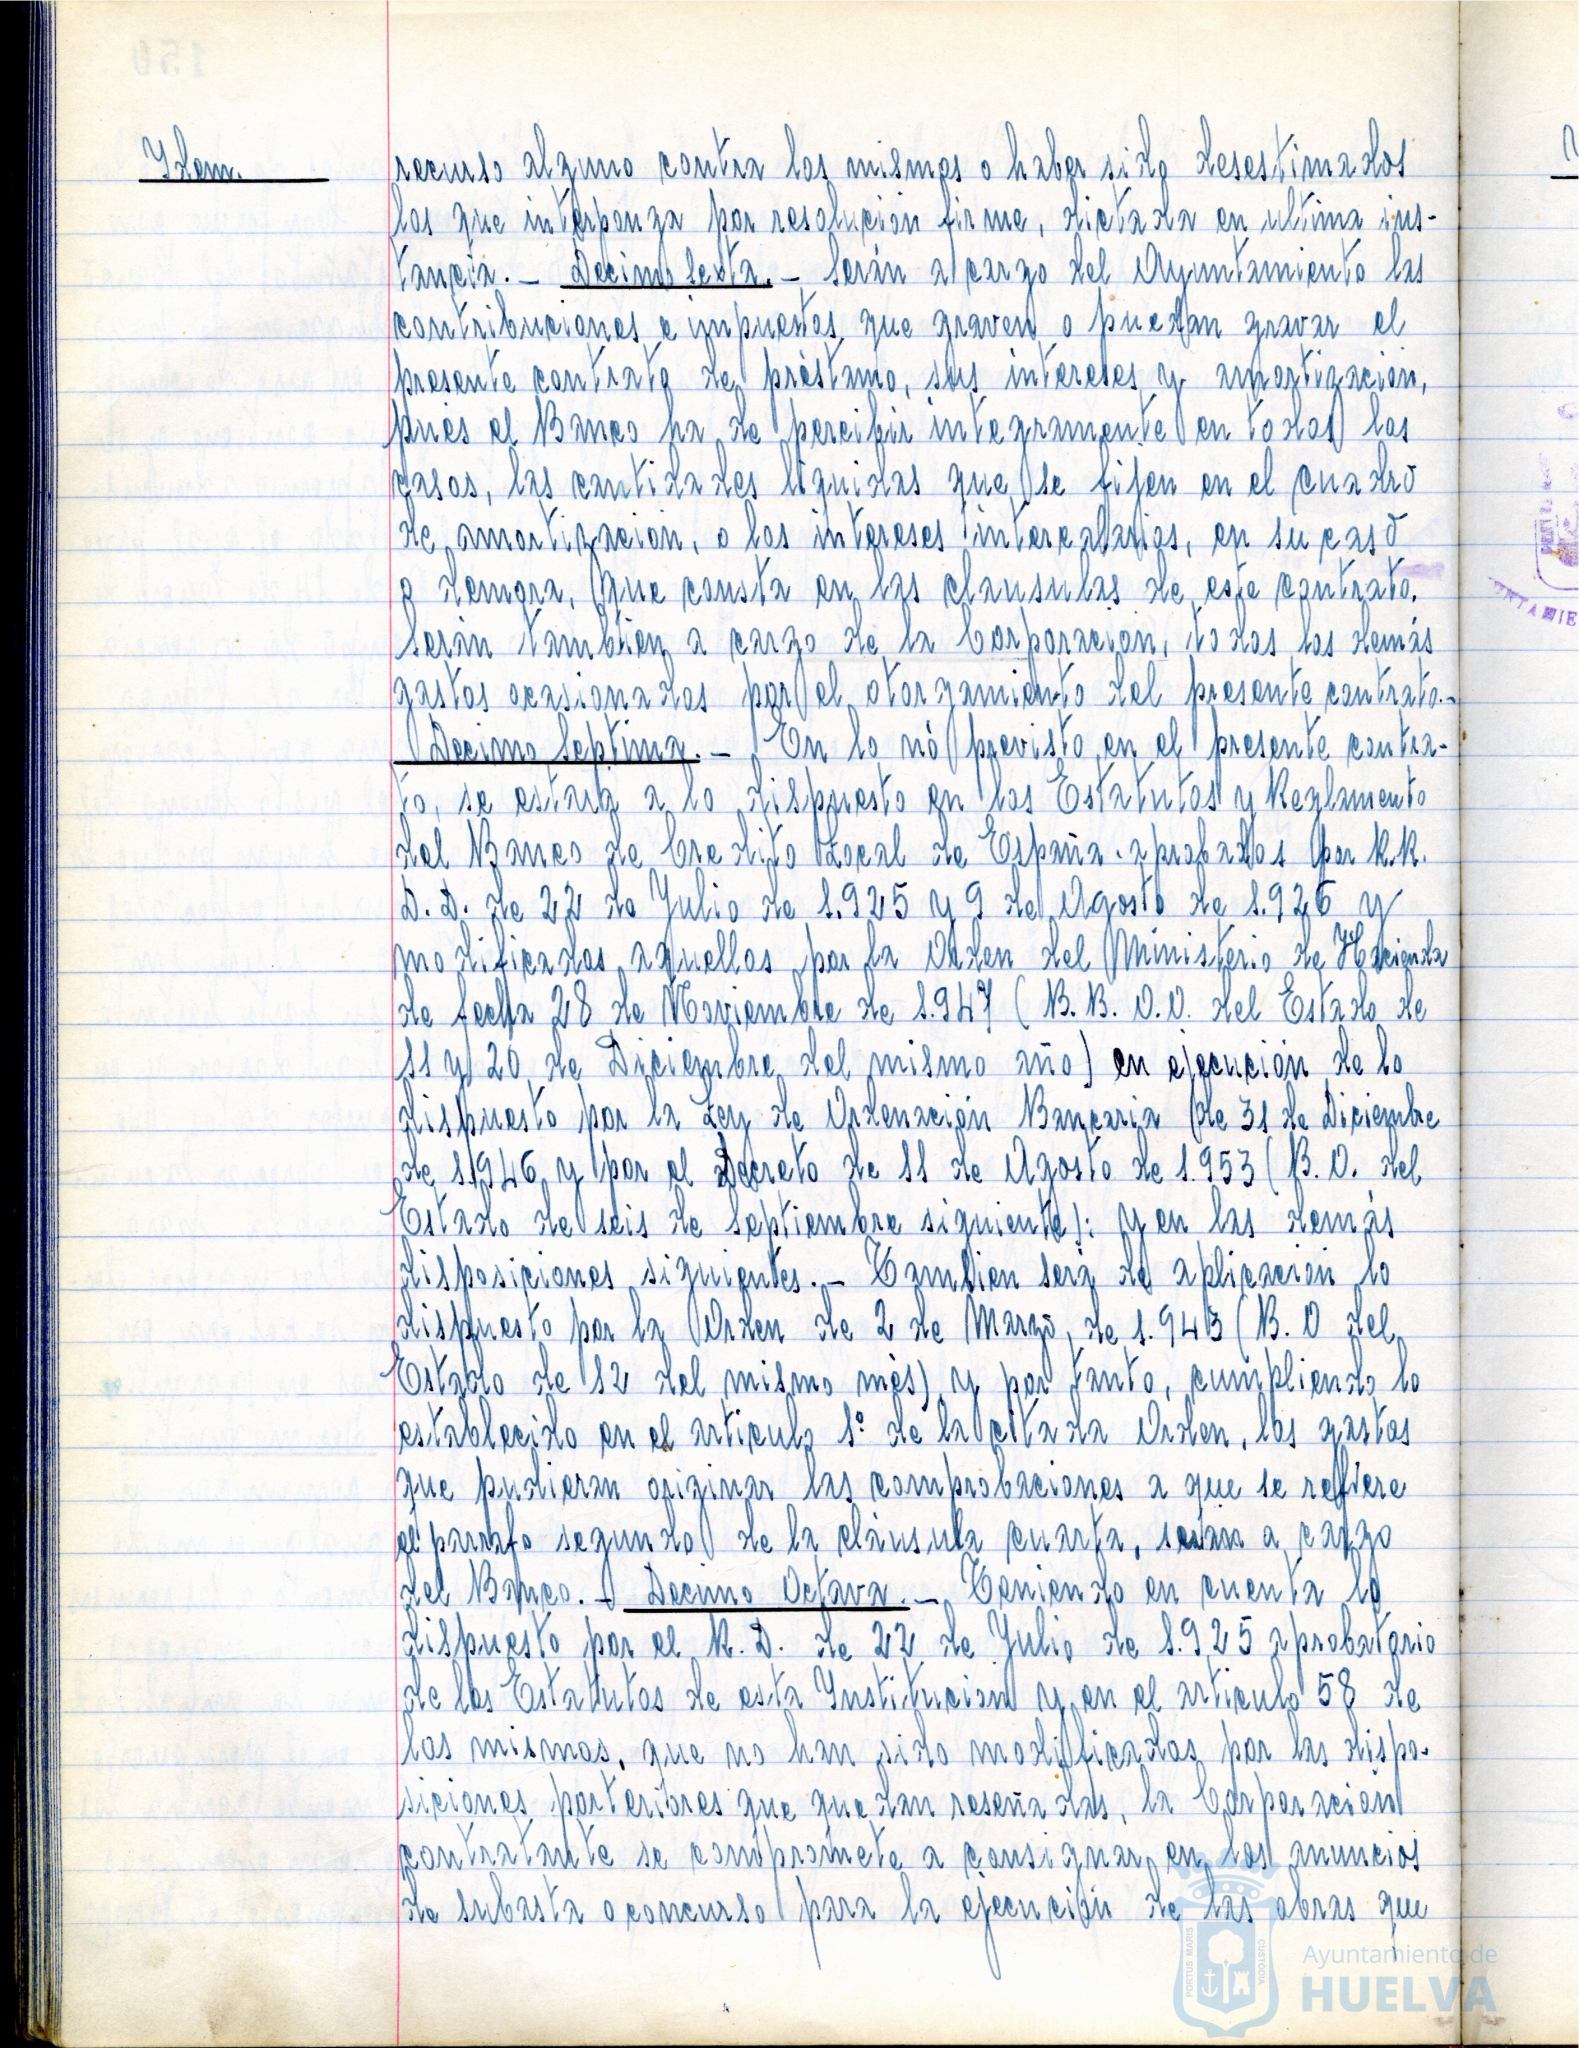 Idem.
recurso alguno contra los mismos o haber sido desestimados
los que interponga por resolución firme, dictada en ultima ins-
tancia.- Decimo Sexta.- Serán a cargo del Ayuntamiento las
contribuciones e impuestos que graven o puedan gravar el
presente contrato de préstamo, sus intereses y amortizacion,
pués el Banco ha de percibir integramente en todos los
casos, las cantidades liquidas que se fijen en el cuadro
de amortización, o los intereses intercalarios, en su caso
o demora, que consta en las clausulas de este contrato.
Serán tambien a cargo de la Corporación, todos los demás
gastos ocasionados por el otorgamiento del presente contrato.-
Decimo Septima.- En lo nó previsto en el presente contra-
to, se estará a lo dispuesto en los Estatutos y Reglamento
del Banco de Credito Local de España. aprobados por R.R.
D.D. de 22 de Julio de 1.925 y 9 de Agosto de 1.926 y
modificados aquellos por la Orden del Ministerio de Hacienda
de fecha 28 de Noviembre de 1.947 (B.B. O.O. del Estado de
11 y 20 de Diciembre del mismo año) en ejecución de lo
dispuesto por la Ley de Ordenación Bancaria de 31 de Diciembre
de 1.946 y por el Decreto de 11 de Agosto de 1.953 (B.O. del
Estado de seis de Septiembre siguiente): y en las demás
disposiciones siguientes.- Tambien será de aplicación lo
dispuesto por la Orden de 2 de Marzo, de 1.943 (B.O del
Estado de 12 del mismo més) y por tanto, cumpliendo lo
establecido en el articulo 1º de la citada Orden, los gastos
que pudieran originar las comprobaciones a que se refiere
el parrafo segundo de la cláusula cuarta, serán a cargo
del Banco.- Decimo Octava.- Teniendo en cuenta lo
dispuesto por el R.D. de 22 de Julio de 1.925 aprobatorio
de los Estatutos de esta Institucion y en el articulo 58 de
los mismos, que no han sido modificados por las dispo-
siciones porteriores que quedan reseñadas, la Corporación
contratante se compromete a consignar en los anuncios
de subasta o concurso para la ejecución de las obras que
PORTUS MARIS
CUSTODIA
Ayuntamiento de
HUELVA